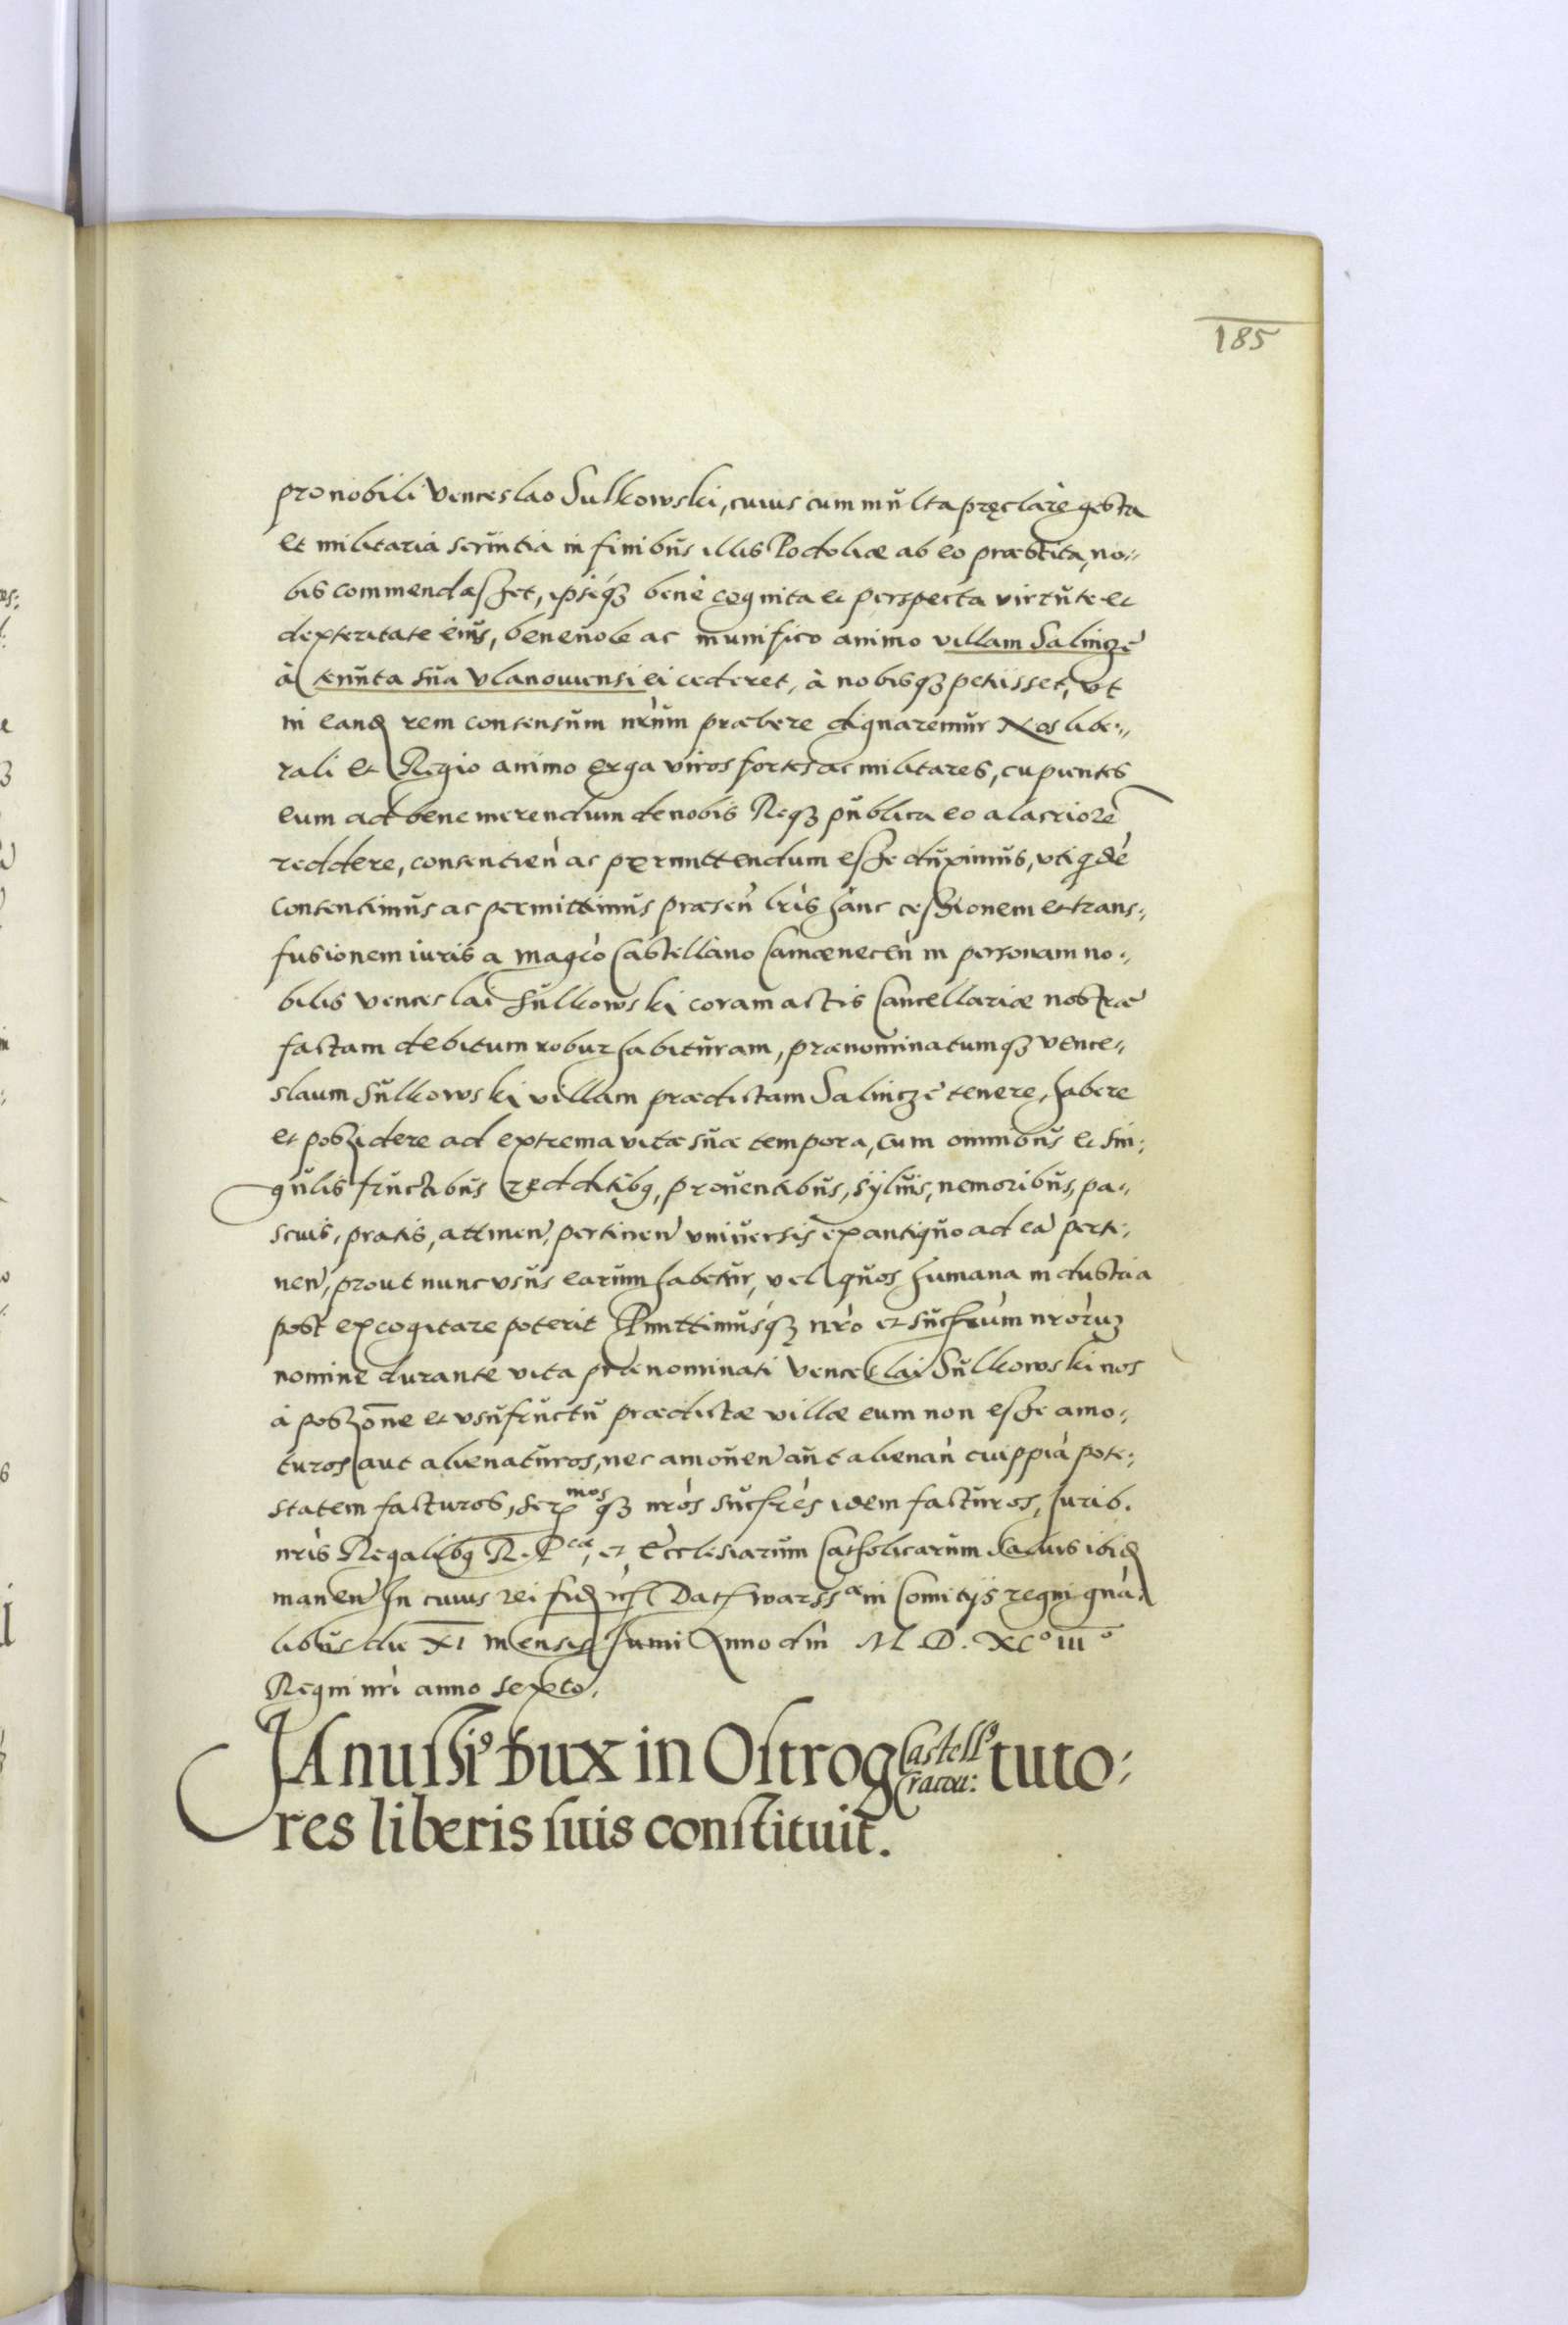 185
pro nobili Venceslao Sulkowski, cuius cum multa pręclarè gesta
et militaria seruitia in finibus illis Podoliæ ab eo præstita, no:
bis commendasset, ipseq́ꝫ benè cognita et perspecta virtute et
dexteritate eius, beneuole ac munifico animo villam Salinczẽ
à tenuta sua Vlanouiensi ei cederet, à nobisqꝫ petiisset, vt
in eand rem consensum nrũm præbere dignaremur Nos libe:
rali et Regio animo erga viros fortes ac militares, cupientes
eum ad bene merendum de nobis Reqꝫ publica eo alacriorẽ
reddere, consentień ac permittendum esse duximus, vti qdè
consentimus ac permittimus præseń lris hanc cessionem et trans:
fusionem iuris a magco Castellano Camæneceń in personam no:
bilis Venceslai Sulkowski coram actis Cancellariæ nostræ
factam debitum robur habituram, prænominatumqꝫ Vence:
slaum Sulkowski villam prædictam Salinczẽ tenere, habere
et possidere ad extrema vitæ suæ tempora, cum omnibus et sin:
gulis fructibus redditibq, prouentibus, syluis, nemoribus, pa:
scuis, pratis, attineń, pertineń vniuersis ex antiquo ad eã perti:
neń, prout nunc vsus earum habetur, vel quos humana industria
post excogitare poterit Pmittimusq́ꝫ nrò et succrùm nròrùꝫ
nomine durante vita prænominati Venceslai Sulkowski nos
à possone et vsufructu prædictæ villæ eum non esse amo:
turos aut alienaturos, nec amoueń aut alienań cuippiã pote:
statem facturos, Sermosqꝫ nròs succrès idem facturos, Iurib.
nris Regalibq R. Pcæ, et Ecclesiarum Catholicarum saluis ibid
maneń In cuius rei fid Dat Warssæ in Comitijs regni gnà:
libus die XI mensis Iunii Anno dni M D. XCº IIIº
Regni nri anno sexto.
JAnussiº Dux in Ostrog Castellº Cracou: tuto:
res liberis suis constituit.